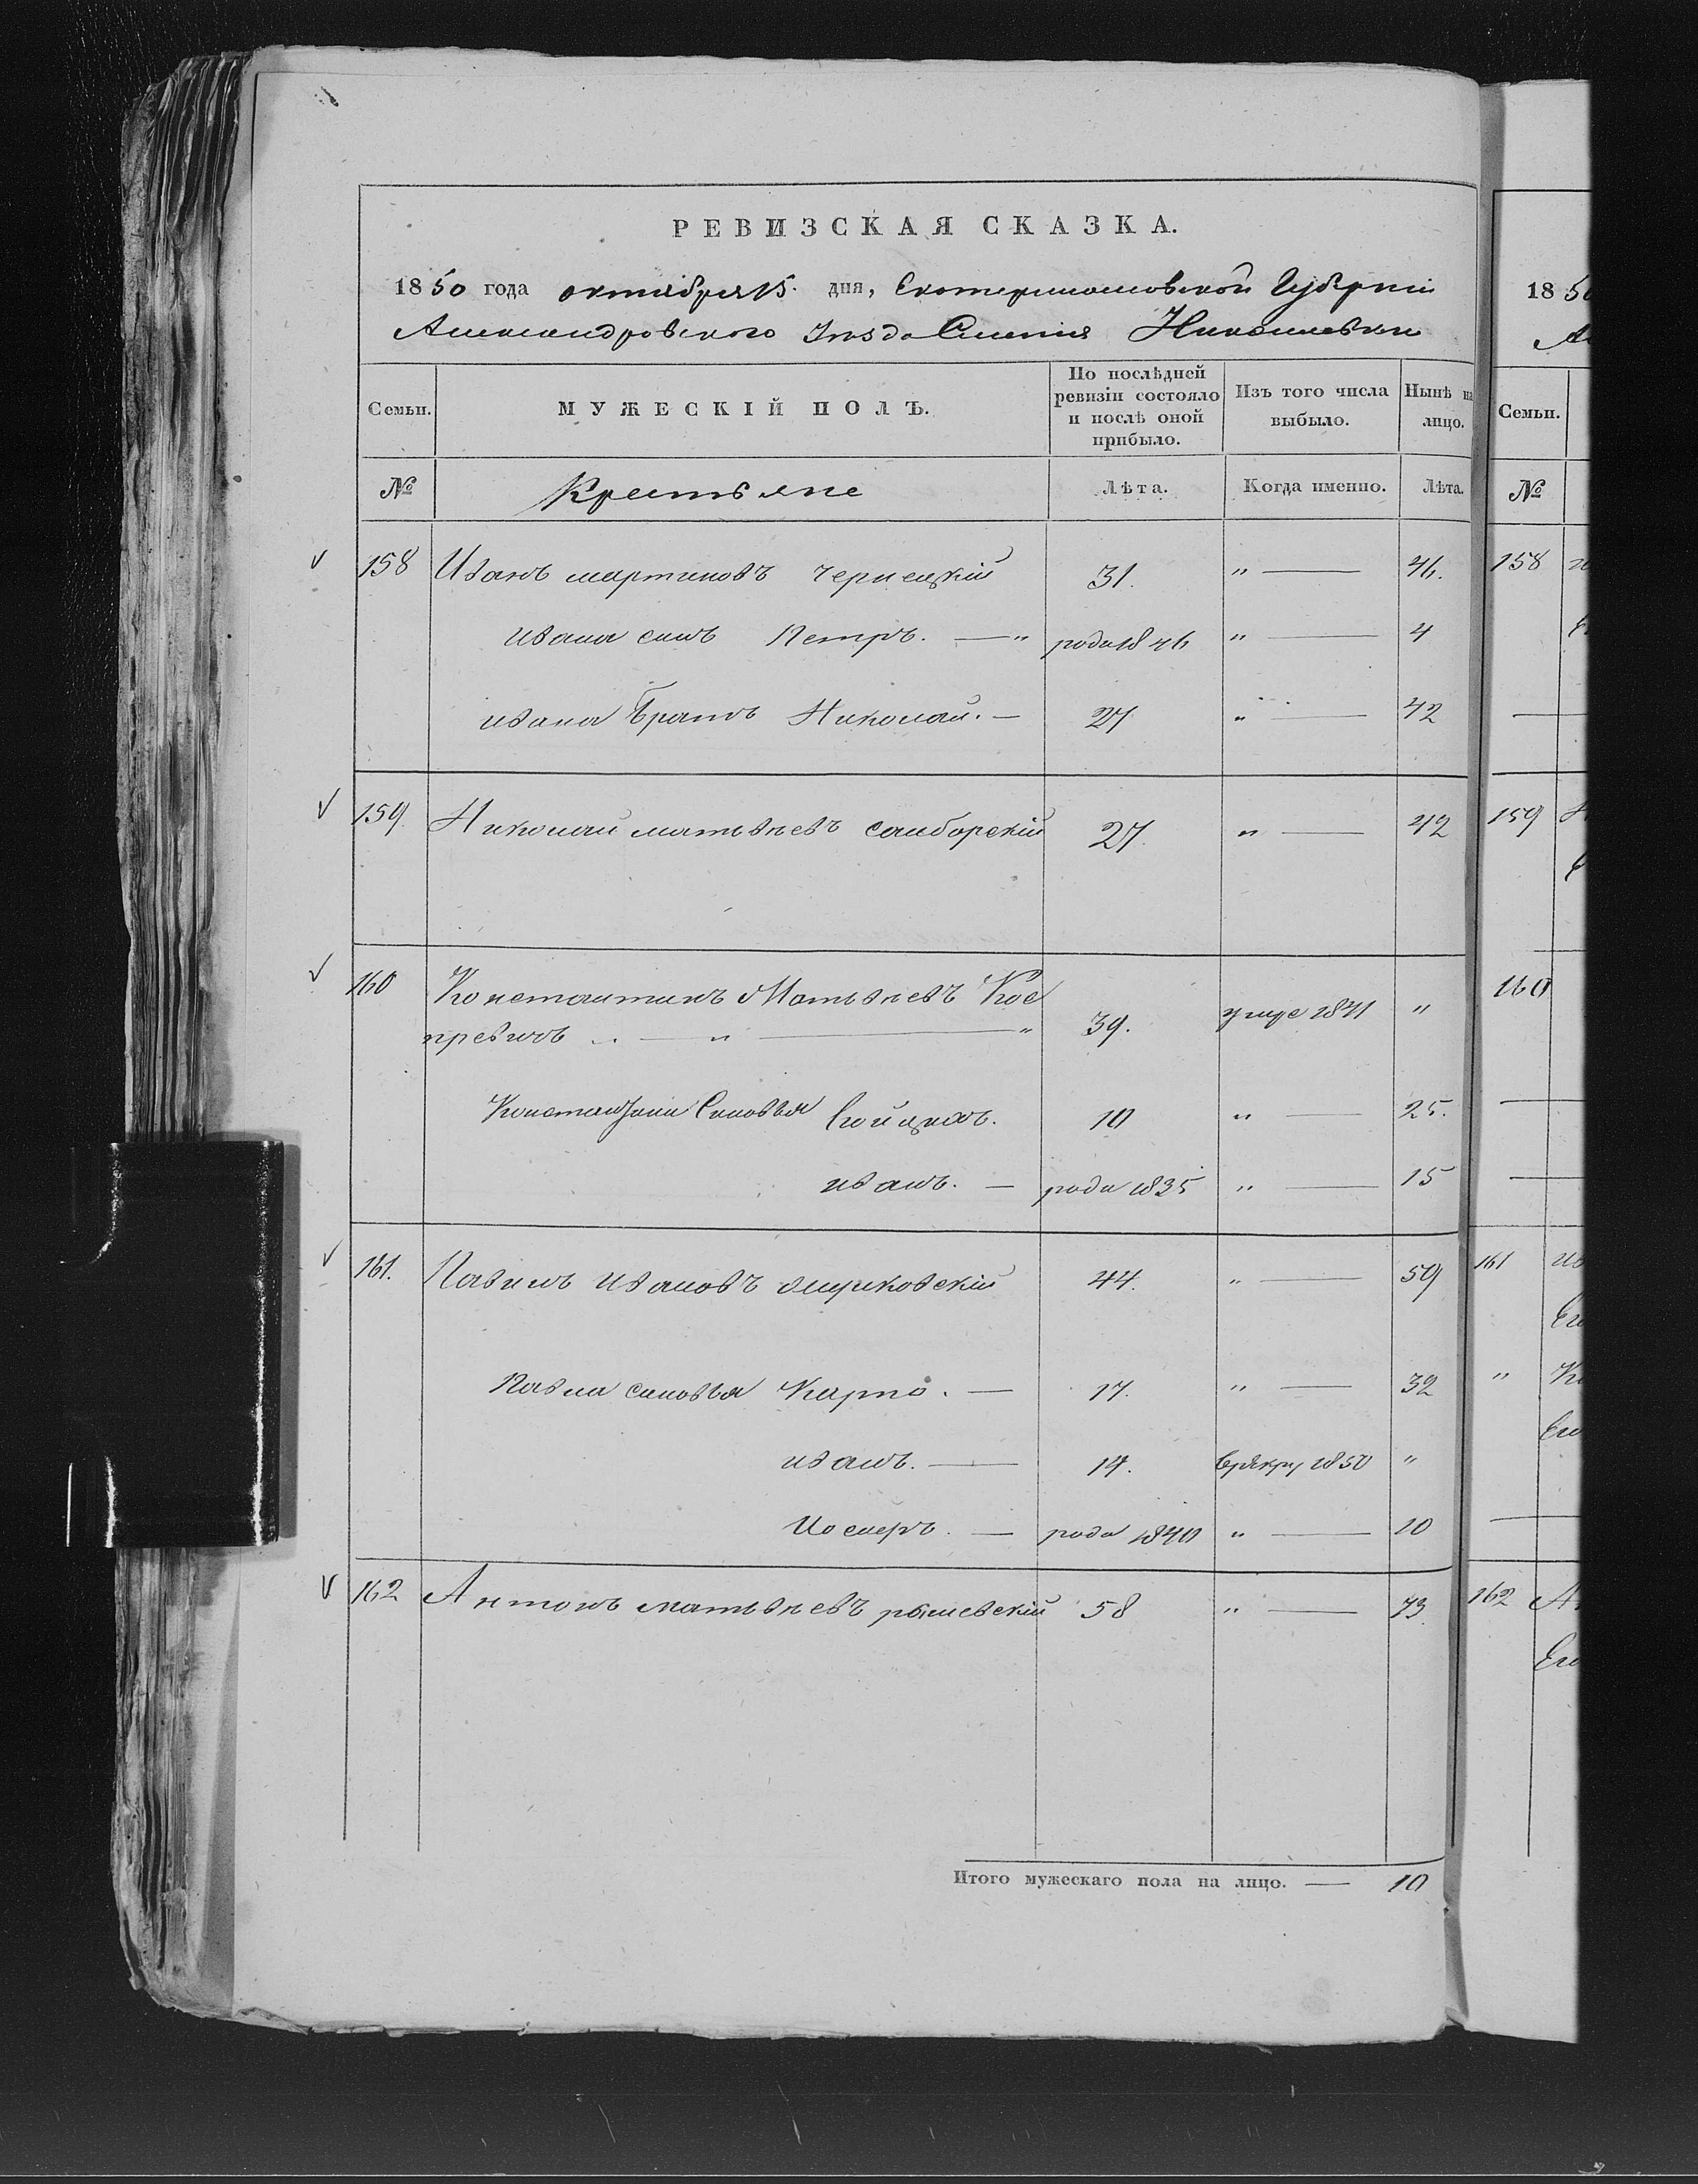 РЕВИЗСКАЯ СКАЗКА.
1850 года октября 15. дня, Екатеринославской Губерніи
Александровского Уезда Имения Николаевки
Семьи.
МУЖЕСКІЙ ПОЛЪ.
По послѣдней ревизіи состояло и послѣ оной прибыло.
Изъ того числа выбыло.
Нынѣ на лицо.
№ Крестьяне Лѣта. Когда именно. Лѣта.
158 Иванъ мартиновъ Чернецкій 31. " — 46.
Ивана сынъ Петръ. — " рода 1846 " — 4
ивана Братъ Николай. — 27 " — 42
159 Николай матвѣевъ самборскій 27. " — 42
160 Константинъ Матвѣевъ Кос
превичъ " — " 39. умре 1841 "
Константина Синовья 10 " — 25.
иванъ. — рода 1835 " — 15
161. Павилъ Ивановъ 44. " — 59
Павла синовья Карпо. — 17. " — 32
иванъ. — 14. Врекру 1850 "
Иосифъ. — рода 1840 " — 10
162 Антонъ матвѣевъ 58 " — 73
Итого мужескаго пола на лицо. — 10
1850
Семьи.
№
158
159
160
161
"
162